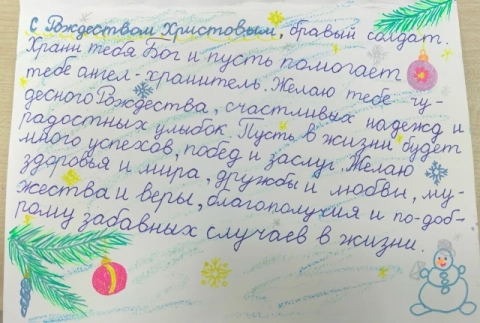 С Рождеством Христовым, бравый солдат.
Храни тебя Бог и пусть помогает
тебе ангел-хранитель. Желаю тебе чу-
десного Рождества, счастливых надежд и
радостных улыбок. Пусть в жизни будет
много успехов, побед и заслуг. Желаю
здоровья и мира, дружбы и любви, му-
жества и веры, благополучия и по-доб-
рому забавных случаев в жизни.